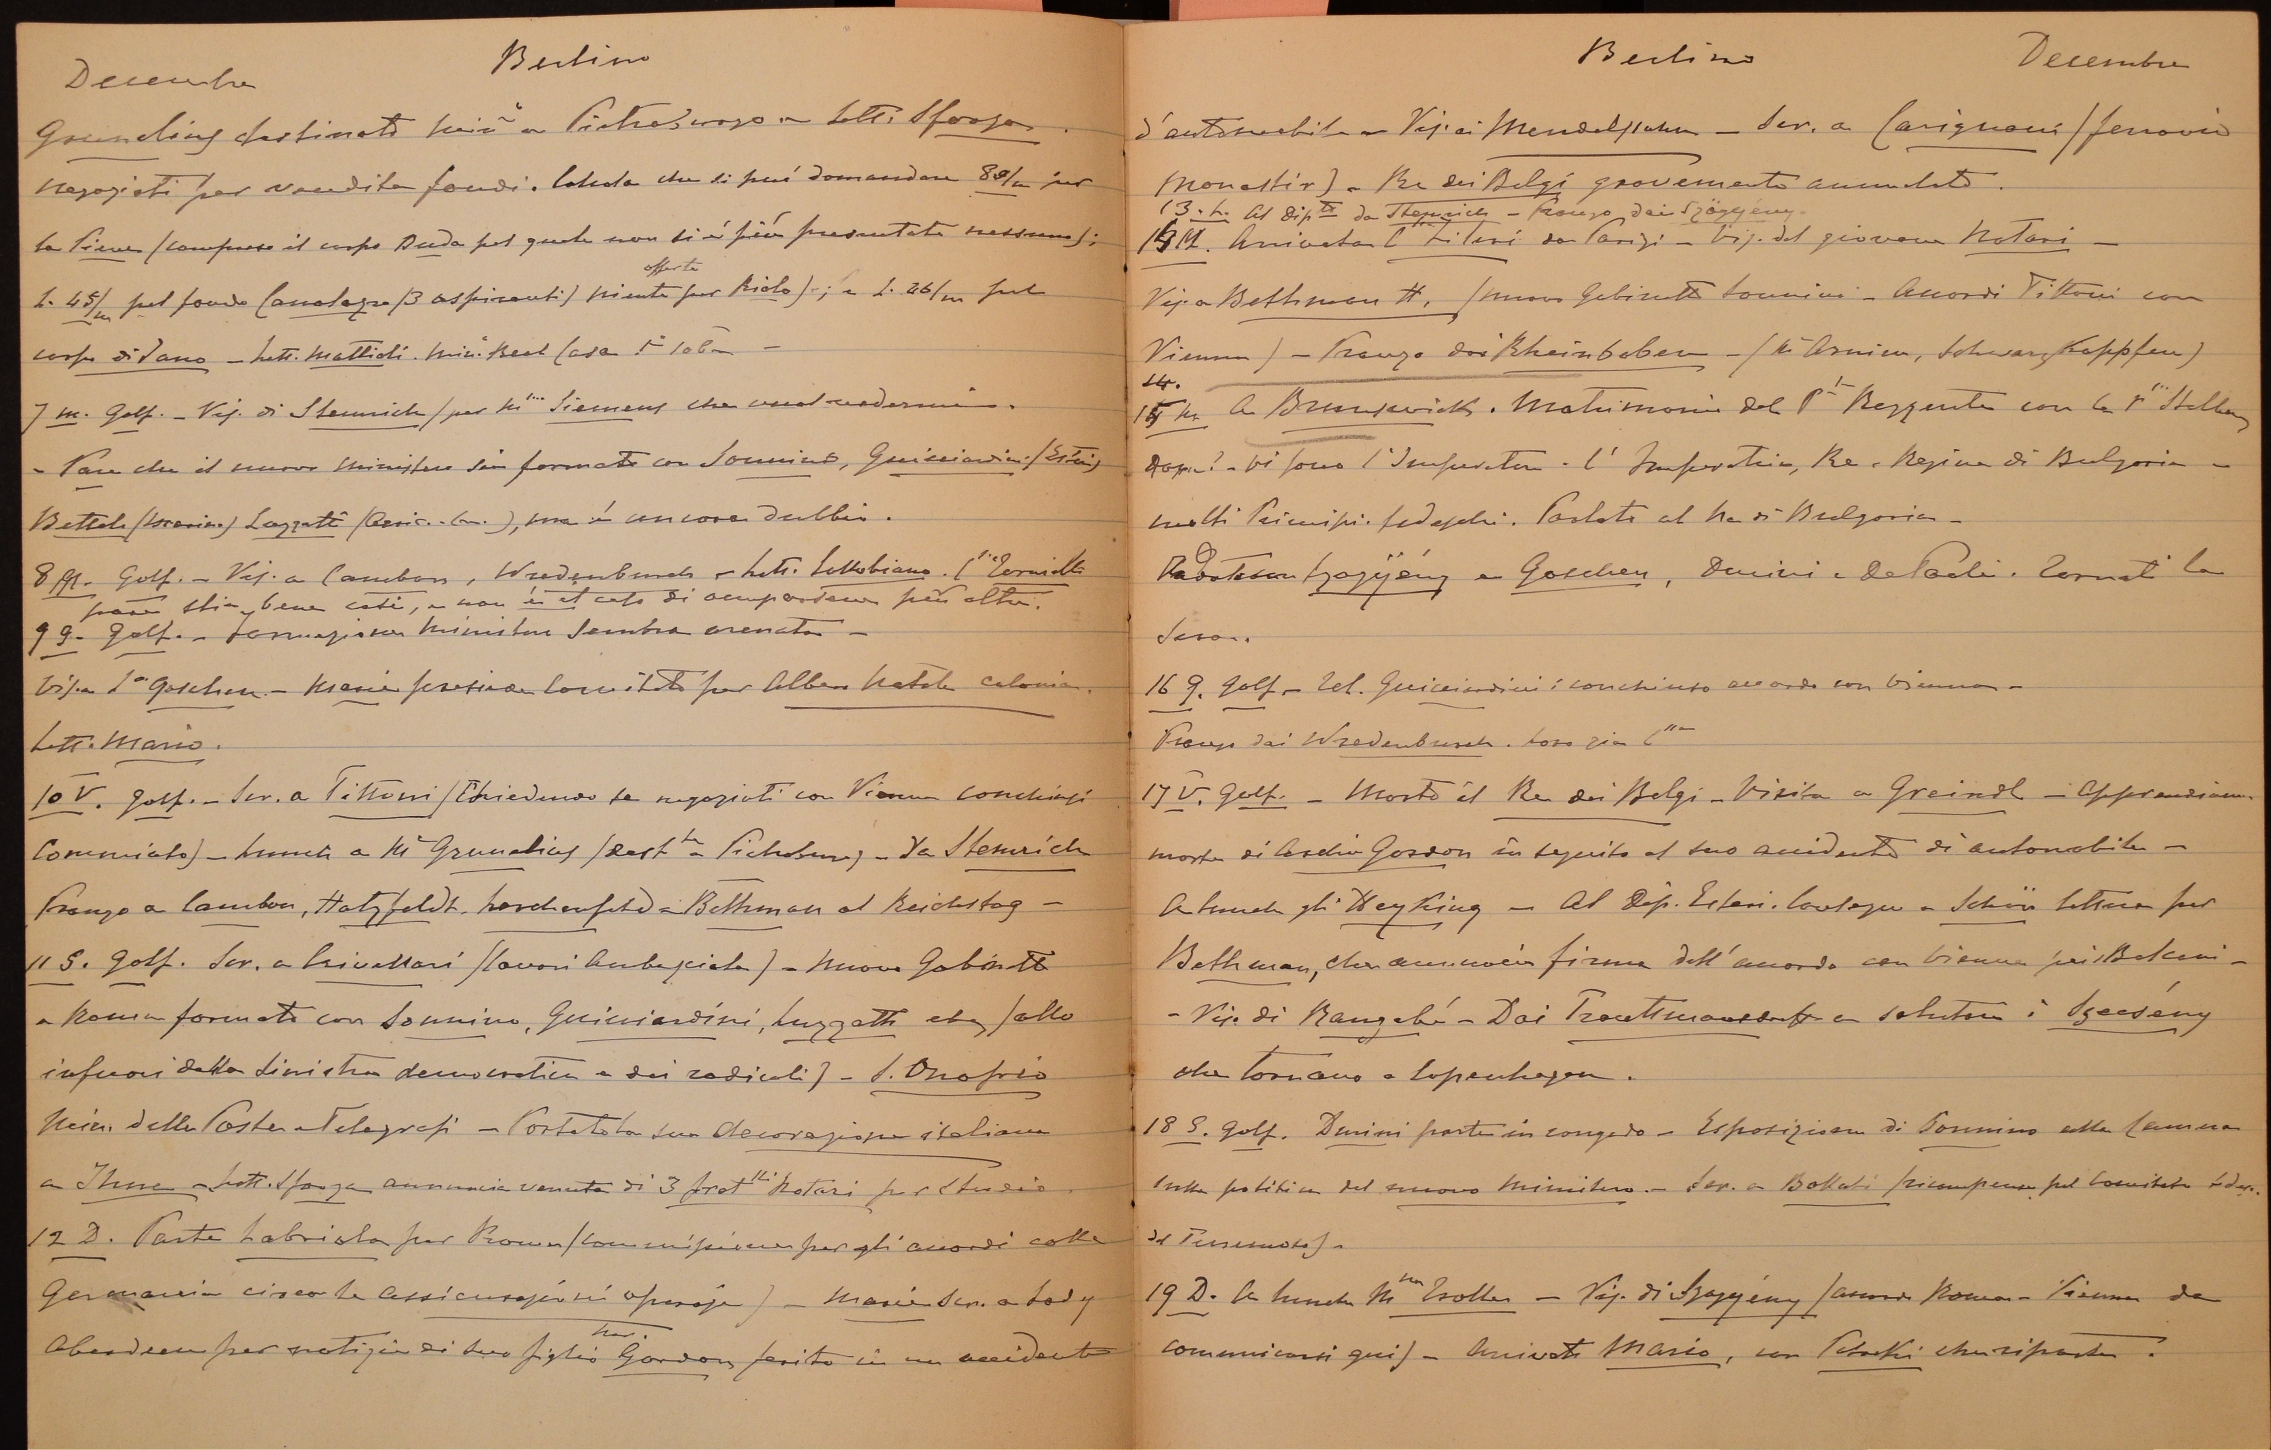 Decembre
Berlino
Grunelius destinato a Pietroburgo - Lett. Sforza.
negoziati per vendita fondi. che si può domandare 80/m per
la Pieve (compreso il corpo Duda pel quale non si è più presentato nessuno);
L. 45/m pel fondo (3 aspiranti) niente offerte per Riolo); e L. 26/m pel
corpo di Sano - Lett. Mattioli. Real Casa
7 m. Golf. - Vis. di Stemrich (per Siemens che vuol vedermi.
- Pare che il nuovo ministero sia formato con Sonnino, Guicciardini (Esteri)
Bettolo (Marina) Luzzatti (Agric. Com.), ma è ancora dubbio.
8 M. Golf. - Vis. a Cambon, Wredenburch - Lett. Tornielli
pare stia bene così, e non è il caso di occuparsene più oltre.
9 G. Golf. - Formazione Ministero sembra arenata -
Vis. a Goschen - Maria presiede Comitato per Albero Natale colonia.
Lett. Mario.
10 V. Golf. - Scr. a Tittoni (Chiedendo se negoziati con Vienna conchiusi
Comunicato) - Lunch a Grunelius (dest. a Pietroburgo) - Da Stemrich
Pranzo a Cambon, Hatzfeldt. Lerchenfeld - Bethman al Reichstag -
11 S. Golf. Scr. a Crivellari (lavori Ambasciata) - Nuovo Gabinetto
a Roma formato con Sonnino, Guicciardini, Luzzatti etc, (allo
infuori della Sinistra democratica e dei radicali) - S. Onofrio
Min. delle Poste e Telegrafi - Portata la sua decorazione italiana
a Ihne - Lett. Sforza annuncia venuta di 3 frat.lli Notari per studio.
12 D. Parte Labriola per Roma (commissione per gli accordi colla
Germania circa le assicurazioni operaje) - Maria scr. a Lady
Aberdeen per notizie di suo figlio Gordon ferito in un accidente
Berlino
Decembre
d'automobile - Vis. ai Mendelssohn - Scr. a Carignani (ferrovia
Monastir) - Re dei Belgi gravemente ammalato.
13. L. Al Dip.to da Stemrich - Pranzo dai Szögyény.
14 M. Arrivata da Parigi - Vis. del giovane Notari -
Vis. a Bethman H. (nuovo Gabinetto Sonnino - Accordi Tittoni con
Vienna) - Pranzo dai Rheinbaben - (Arnim, Schwarzkoppfen)
15 M A Brunswick. Matrimonio del Reggente con la Stolberg
Dopo: - Vi sono l'Imperatore - l'Imperatrice, Re e Regina di Bulgaria -
molti Principi tedeschi. Parlato al Re di Bulgaria -
Szögyény e Goschen, Durini e De Paoli. Tornati la
sera.
16 G. Golf - Tel. Guicciardini: conchiuso accordo con Vienna -
Pranzo dai Wredenburch.
17 V. Golf. - Morto il Re dei Belgi - Visita a Greindl - Apprendiamo
morte di Archie Gordon in seguito al suo accidente di automobile -
A lunch gli Heyking - Al Dip. Esteri. Consegno a Schön lettera per
Bethman, che annuncia firma dell'accordo con Vienna pei Balcani -
- Vis. di Rangabé - Dai Trauttmansdorff a salutare i Szecsény
che tornano a Copenhagen.
18 S. Golf. Durini parte in congedo - Esposizione di Sonnino alla Camera
sulla politica del nuovo Ministero. - Scr. a Bollati (ricompense pel Comitato tedes.
del Terremoto) -
19 D. A lunch Trotter - Vis. di Szögyény (accordo Roma - Vienna da
comunicarsi qui) - Arrivato Mario, con che riparte.